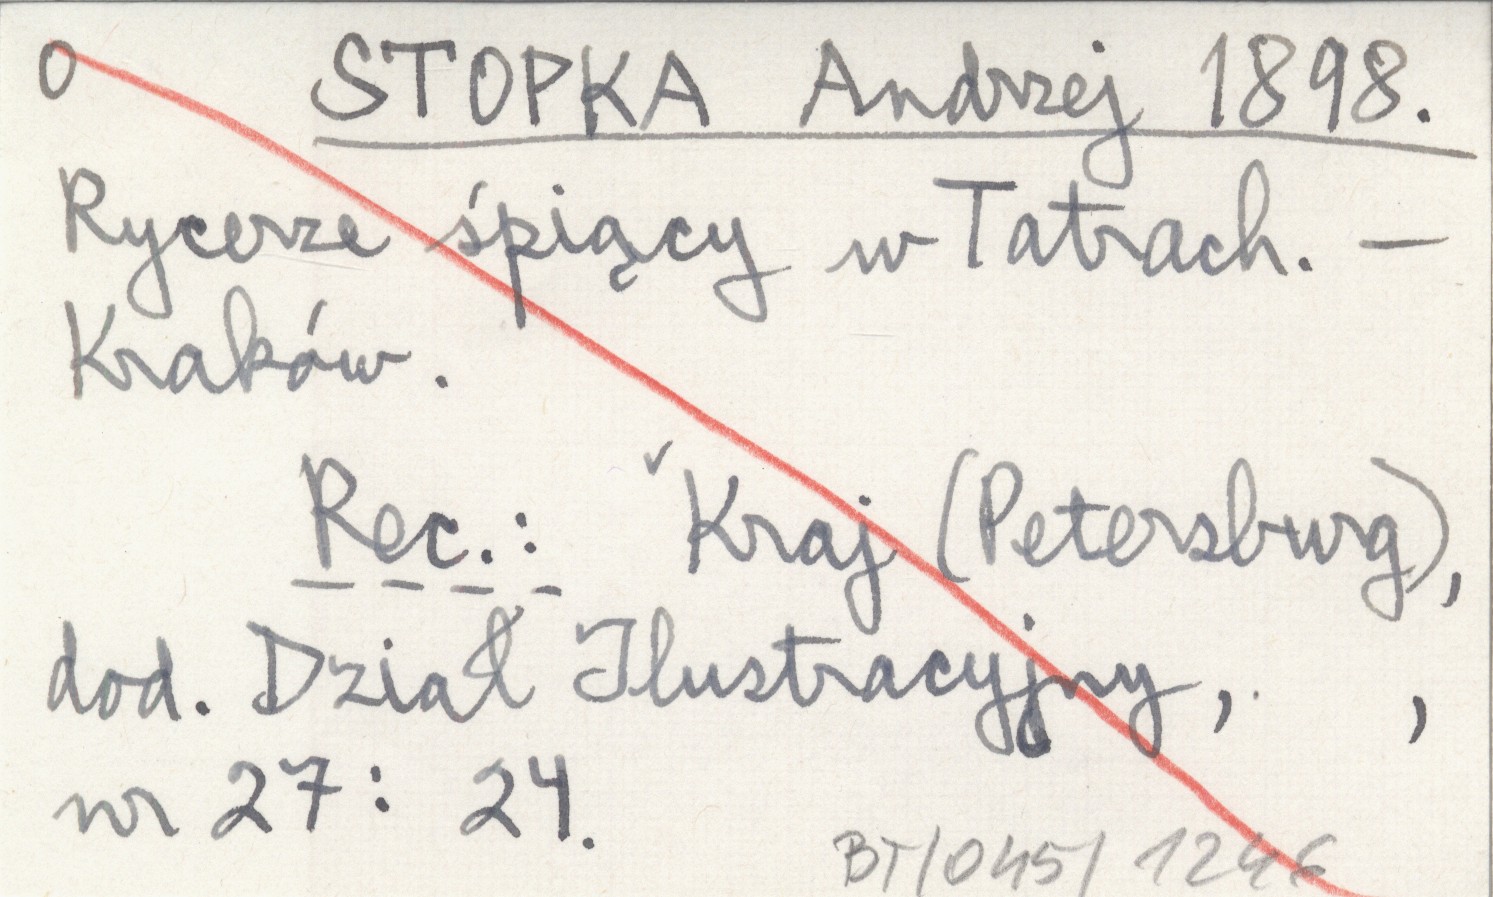 0 STOPKA Andrzej 1898.
Rycerze śpiący w Tatrach. —
Kraków.
Rec.: ✓Kraj (Petersburg),
dod. Dział Ilustracyjny, ,
nr 27: 24.
BT/045/1246